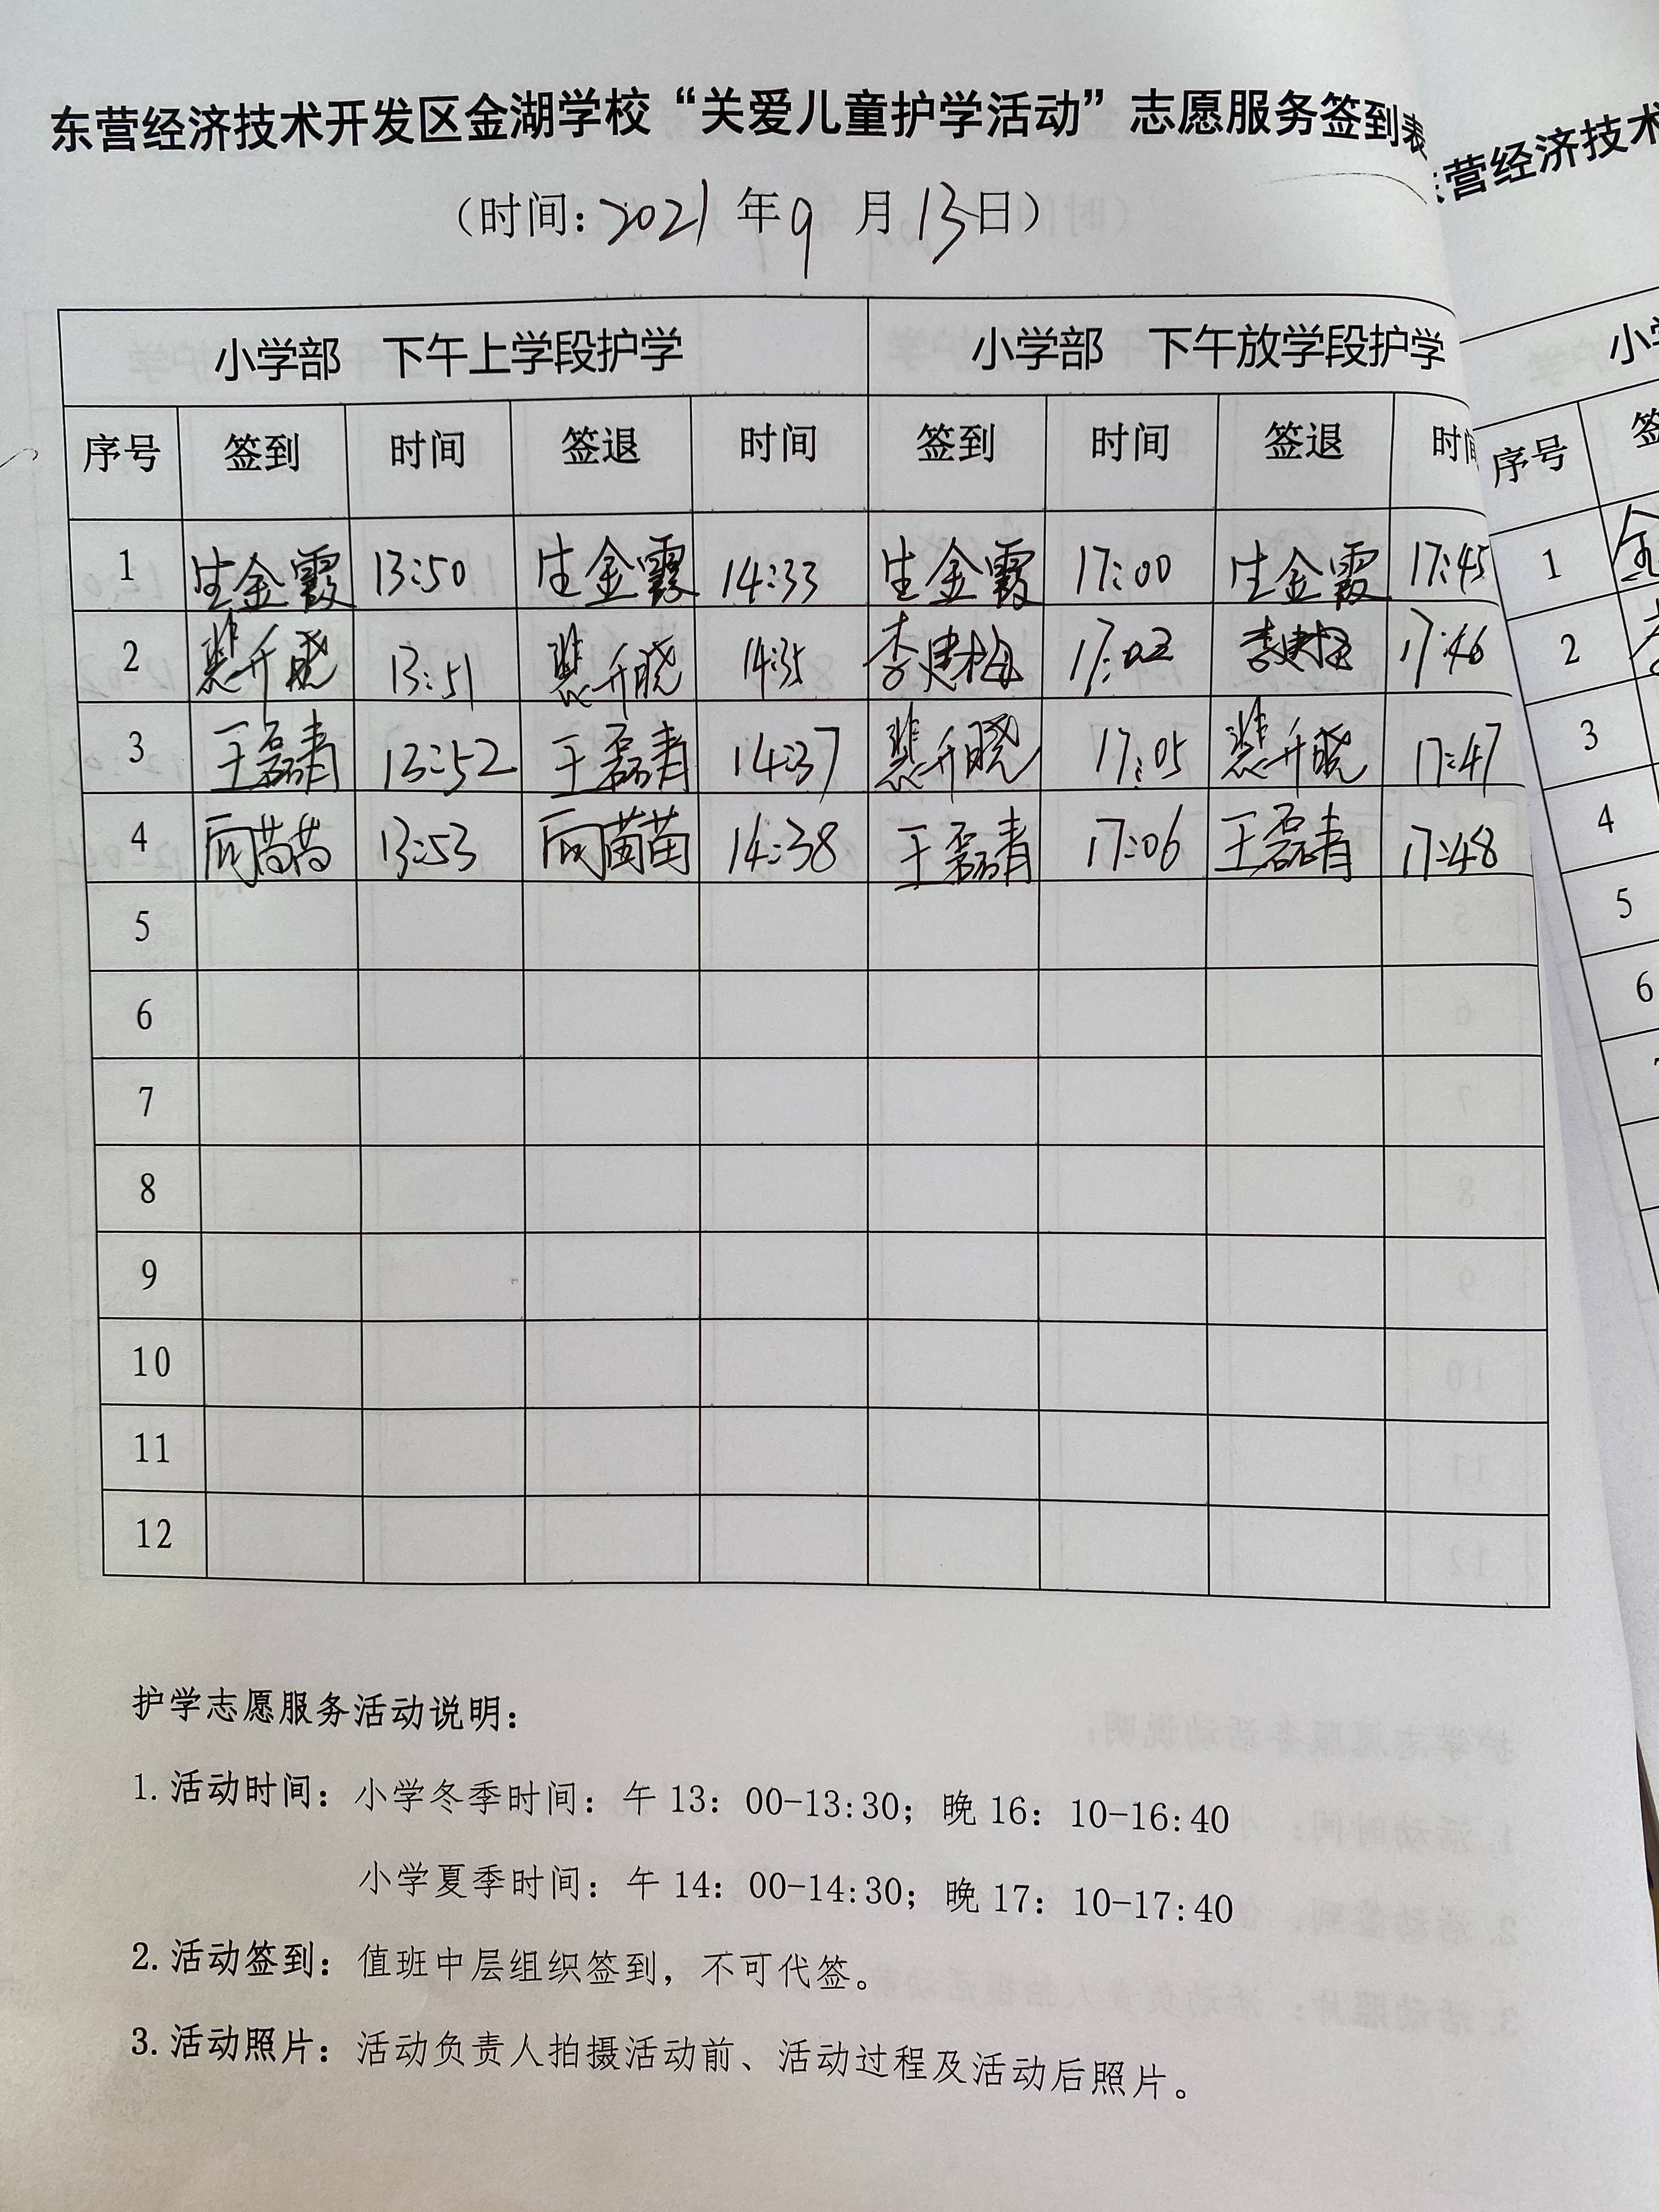 东营经济技术开发区金湖学校“关爱儿童护学活动”志愿服务签到表
（时间：2021年9月13日）
小学部 下午上学段护学 小学部 下午放学段护学
序号 签到 时间 签退 时间 签到 时间 签退 时间
1 生金霞 13:50 生金霞 14:33 生金霞 17:00 生金霞 17:45
2 裴升晓 13:51 裴升晓 14:35 李建梅 17:02 李建梅 17:46
3 王磊青 13:52 王磊青 14:37 裴升晓 17:05 裴升晓 17:47
4 苗苗 13:53 苗苗 14:38 王磊青 17:06 王磊青 17:48
5
6
7
8
9
10
11
12
护学志愿服务活动说明：
1.活动时间：小学冬季时间：午13：00-13:30；晚16：10-16:40
小学夏季时间：午14：00-14:30；晚17：10-17:40
2.活动签到：值班中层组织签到，不可代签。
3.活动照片：活动负责人拍摄活动前、活动过程及活动后照片。
营经济技术
小学
序号 签
1
2
3
4
5
6